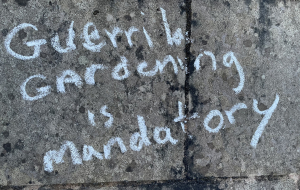 Guerrilla
GARDENING
is
mandatory